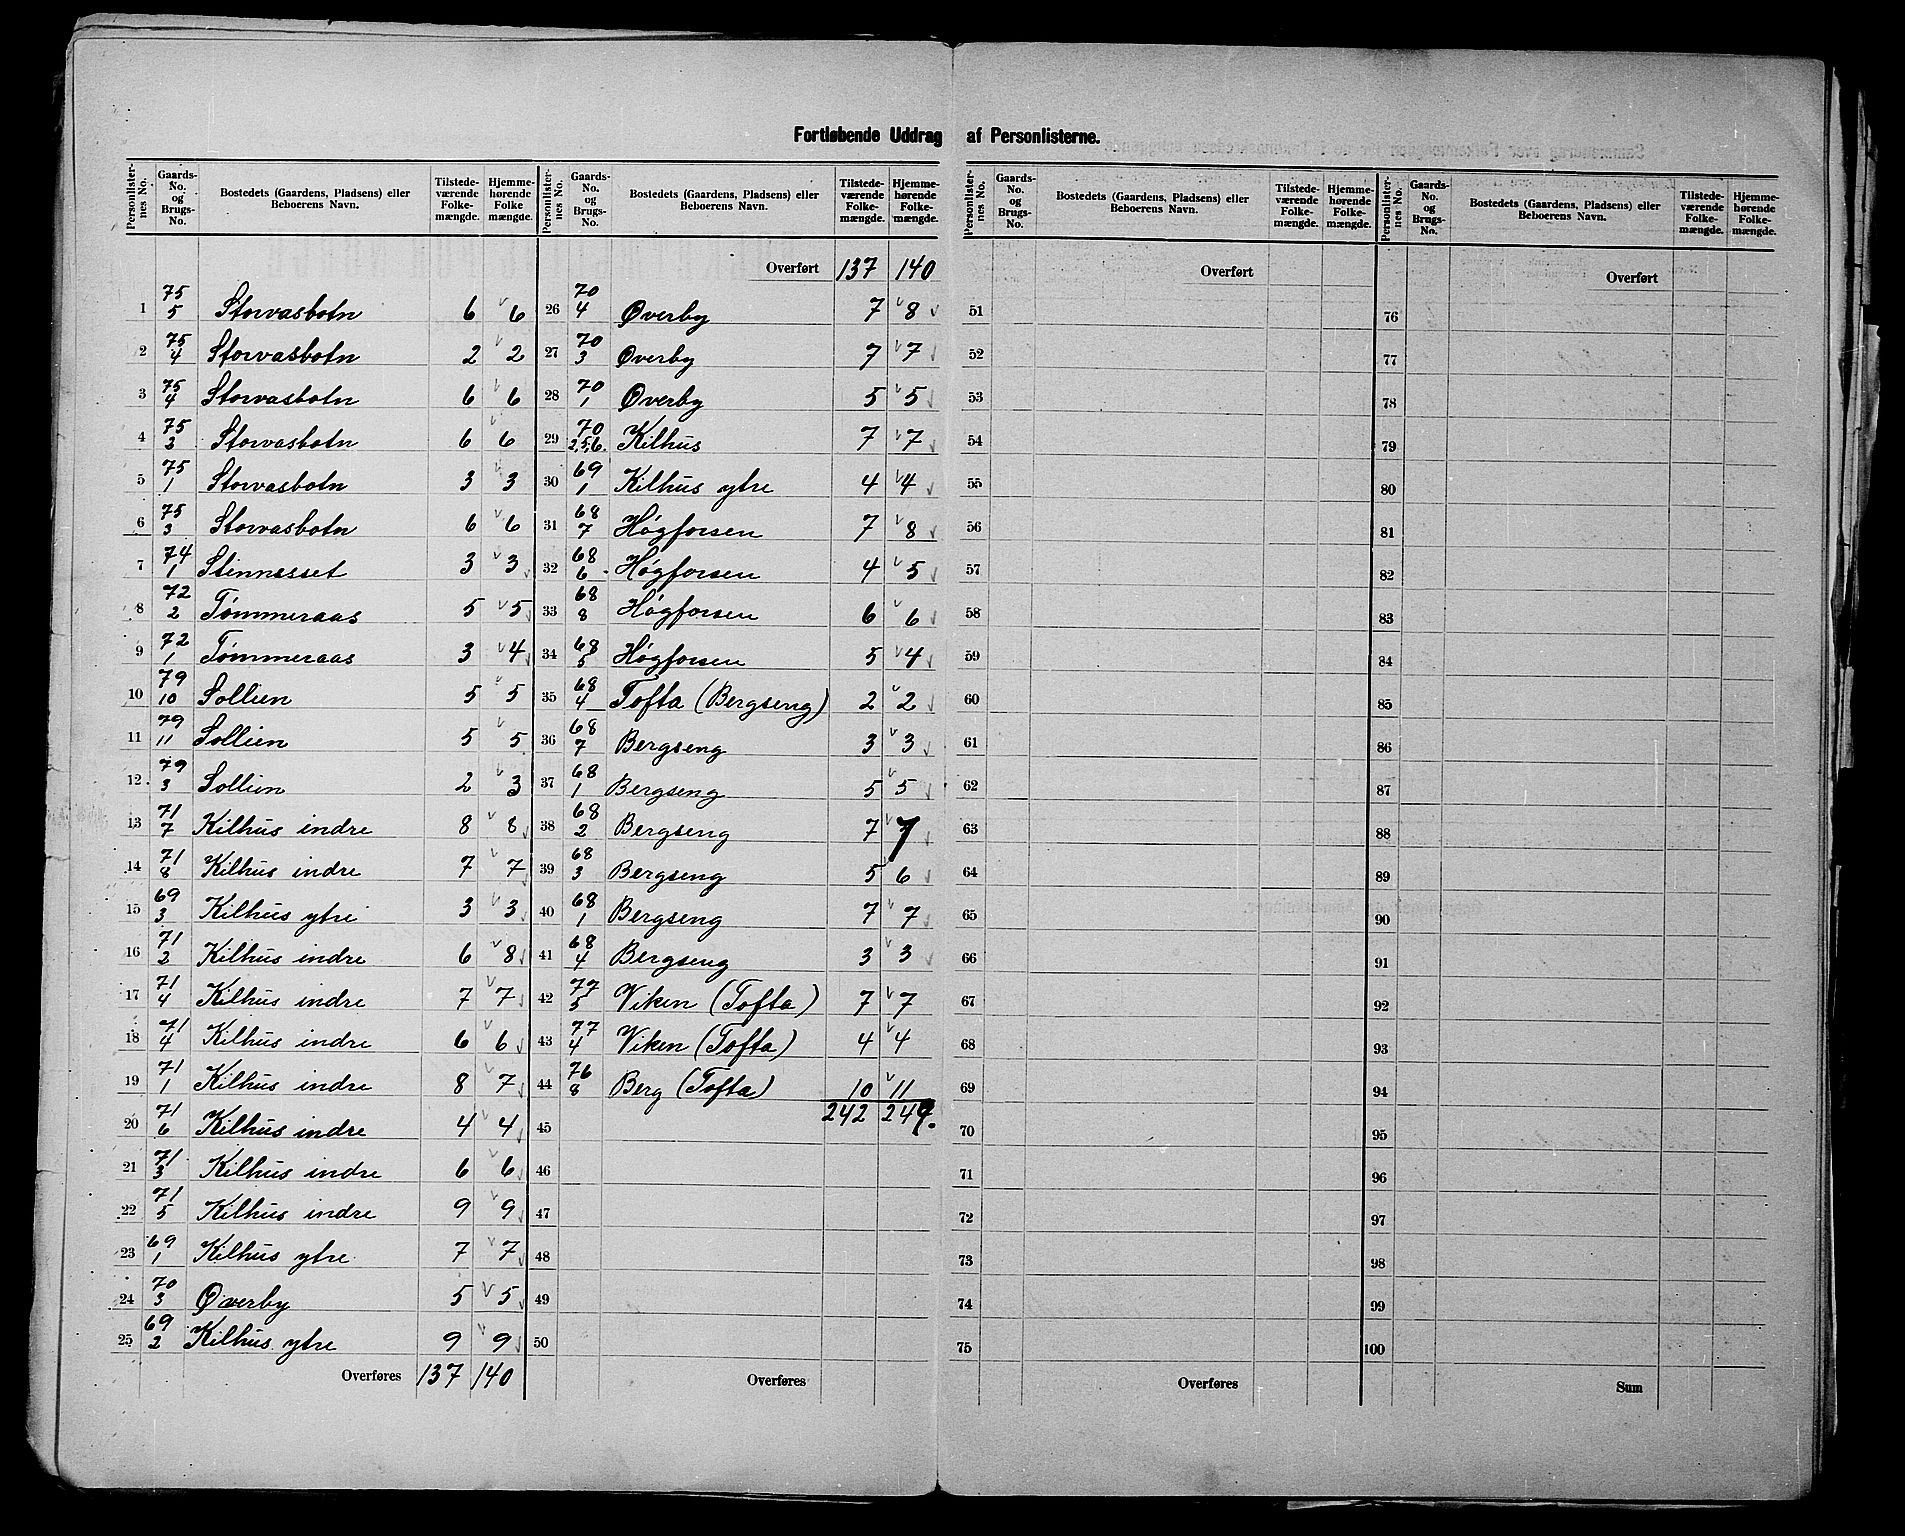 Fortløbende Uddrag af Personlisterne.
Personlister-nes No. | Gaards-No. og Brugs-No. | Bostedets (Gaardens, Pladsens) eller Beboerens Navn. | Tilstede-værende Folke-mængde. | Hjemme-hørende Folke mængde.
1 75/5 Storvasbotn 6 6
2 75/4 Storvasbotn 2 2
3 75/4 Storvasbotn 6 6
4 75/2 Storvasbotn 6 6
5 75/1 Storvasbotn 3 3
6 75/3 Storvasbotn 6 6
7 74/1 Stennesset 3 3
8 72/2 Tømmeraas 5 5
9 72/1 Tømmeraas 3 4
10 79/10 Sollien 5 5
11 79/11 Sollien 5 5
12 79/3 Sollien 2 3
13 71/7 Kilhus indre 8 8
14 71/8 Kilhus indre 7 7
15 69/3 Kilhus ytre 3 3
16 71/2 Kilhus indre 6 8
17 71/4 Kilhus indre 7 7
18 71/4 Kilhus indre 6 6
19 71/1 Kilhus indre 8 7
20 71/6 Kilhus indre 4 4
21 71/3 Kilhus indre 6 6
22 71/5 Kilhus indre 9 9
23 69/1 Kilhus ytre 7 7
24 70/3 Øverby 5 5
25 69/2 Kilhus ytre 9 9
Overføres 137 140
Personlister-nes No. | Gaards-No. og Brugs-No. | Bostedets (Gaardens, Pladsens) eller Beboerens Navn. | Tilstede-værende Folke-mængde. | Hjemme-hørende Folke-mængde.
Overført 137 140
26 70/4 Øverby 7 8
27 70/3 Øverby 7 7
28 70/1 Øverby 5 5
29 70/2,5,6. Kilhus 7 7
30 69/1 Kilhus ytre 4 4
31 68/7 Høgforsen 7 8
32 68/6 Høgforsen 4 5
33 68/8 Høgforsen 6 6
34 68/5 Høgforsen 5 4
35 68/4 Tofta (Bergseng) 2 2
36 68/7 Bergseng 3 3
37 68/1 Bergseng 5 5
38 68/2 Bergseng 7 7
39 68/3 Bergseng 5 6
40 68/1 Bergseng 7 7
41 68/4 Bergseng 3 3
42 77/5 Viken (Tofta) 7 7
43 77/4 Viken (Tofta) 4 4
44 76/8 Berg (Tofta) 10 11
45 242 249.
46
47
48
49
50
Overføres
Personlister-nes No. | Gaards-No. og Brugs-No. | Bostedets (Gaardens, Pladsens) eller Beboerens Navn. | Tilstede-værende Folke-mængde. | Hjemme-hørende Folke-mængde.
Overført
51
52
53
54
55
56
57
58
59
60
61
62
63
64
65
66
67
68
69
70
71
72
73
74
75
Overføres
Personlister-nes No. | Gaards-No. og Brugs-No. | Bostedets (Gaardens, Pladsens) eller Beboerens Navn. | Tilstede-værende Folke-mængde. | Hjemme-hørende Folke-mængde.
Overført
76
77
78
79
80
81
82
83
84
85
86
87
88
89
90
91
92
93
94
95
96
97
98
99
100
Sum